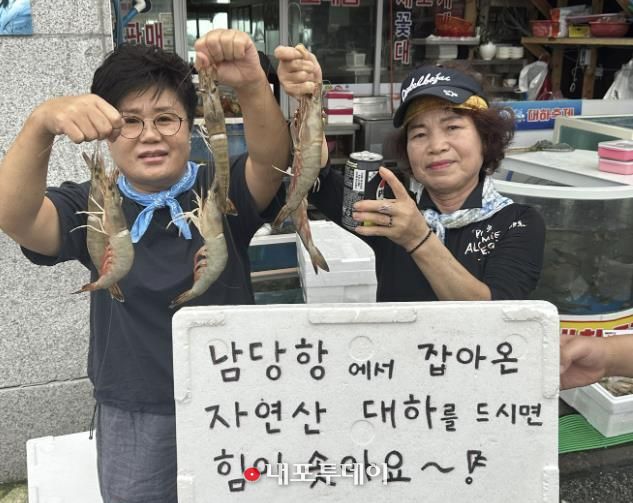 판매
꽃
대
대하축제
남당항에서 잡아온
자연산 대하를 드시면
힘이 솟아요~
내포투데이